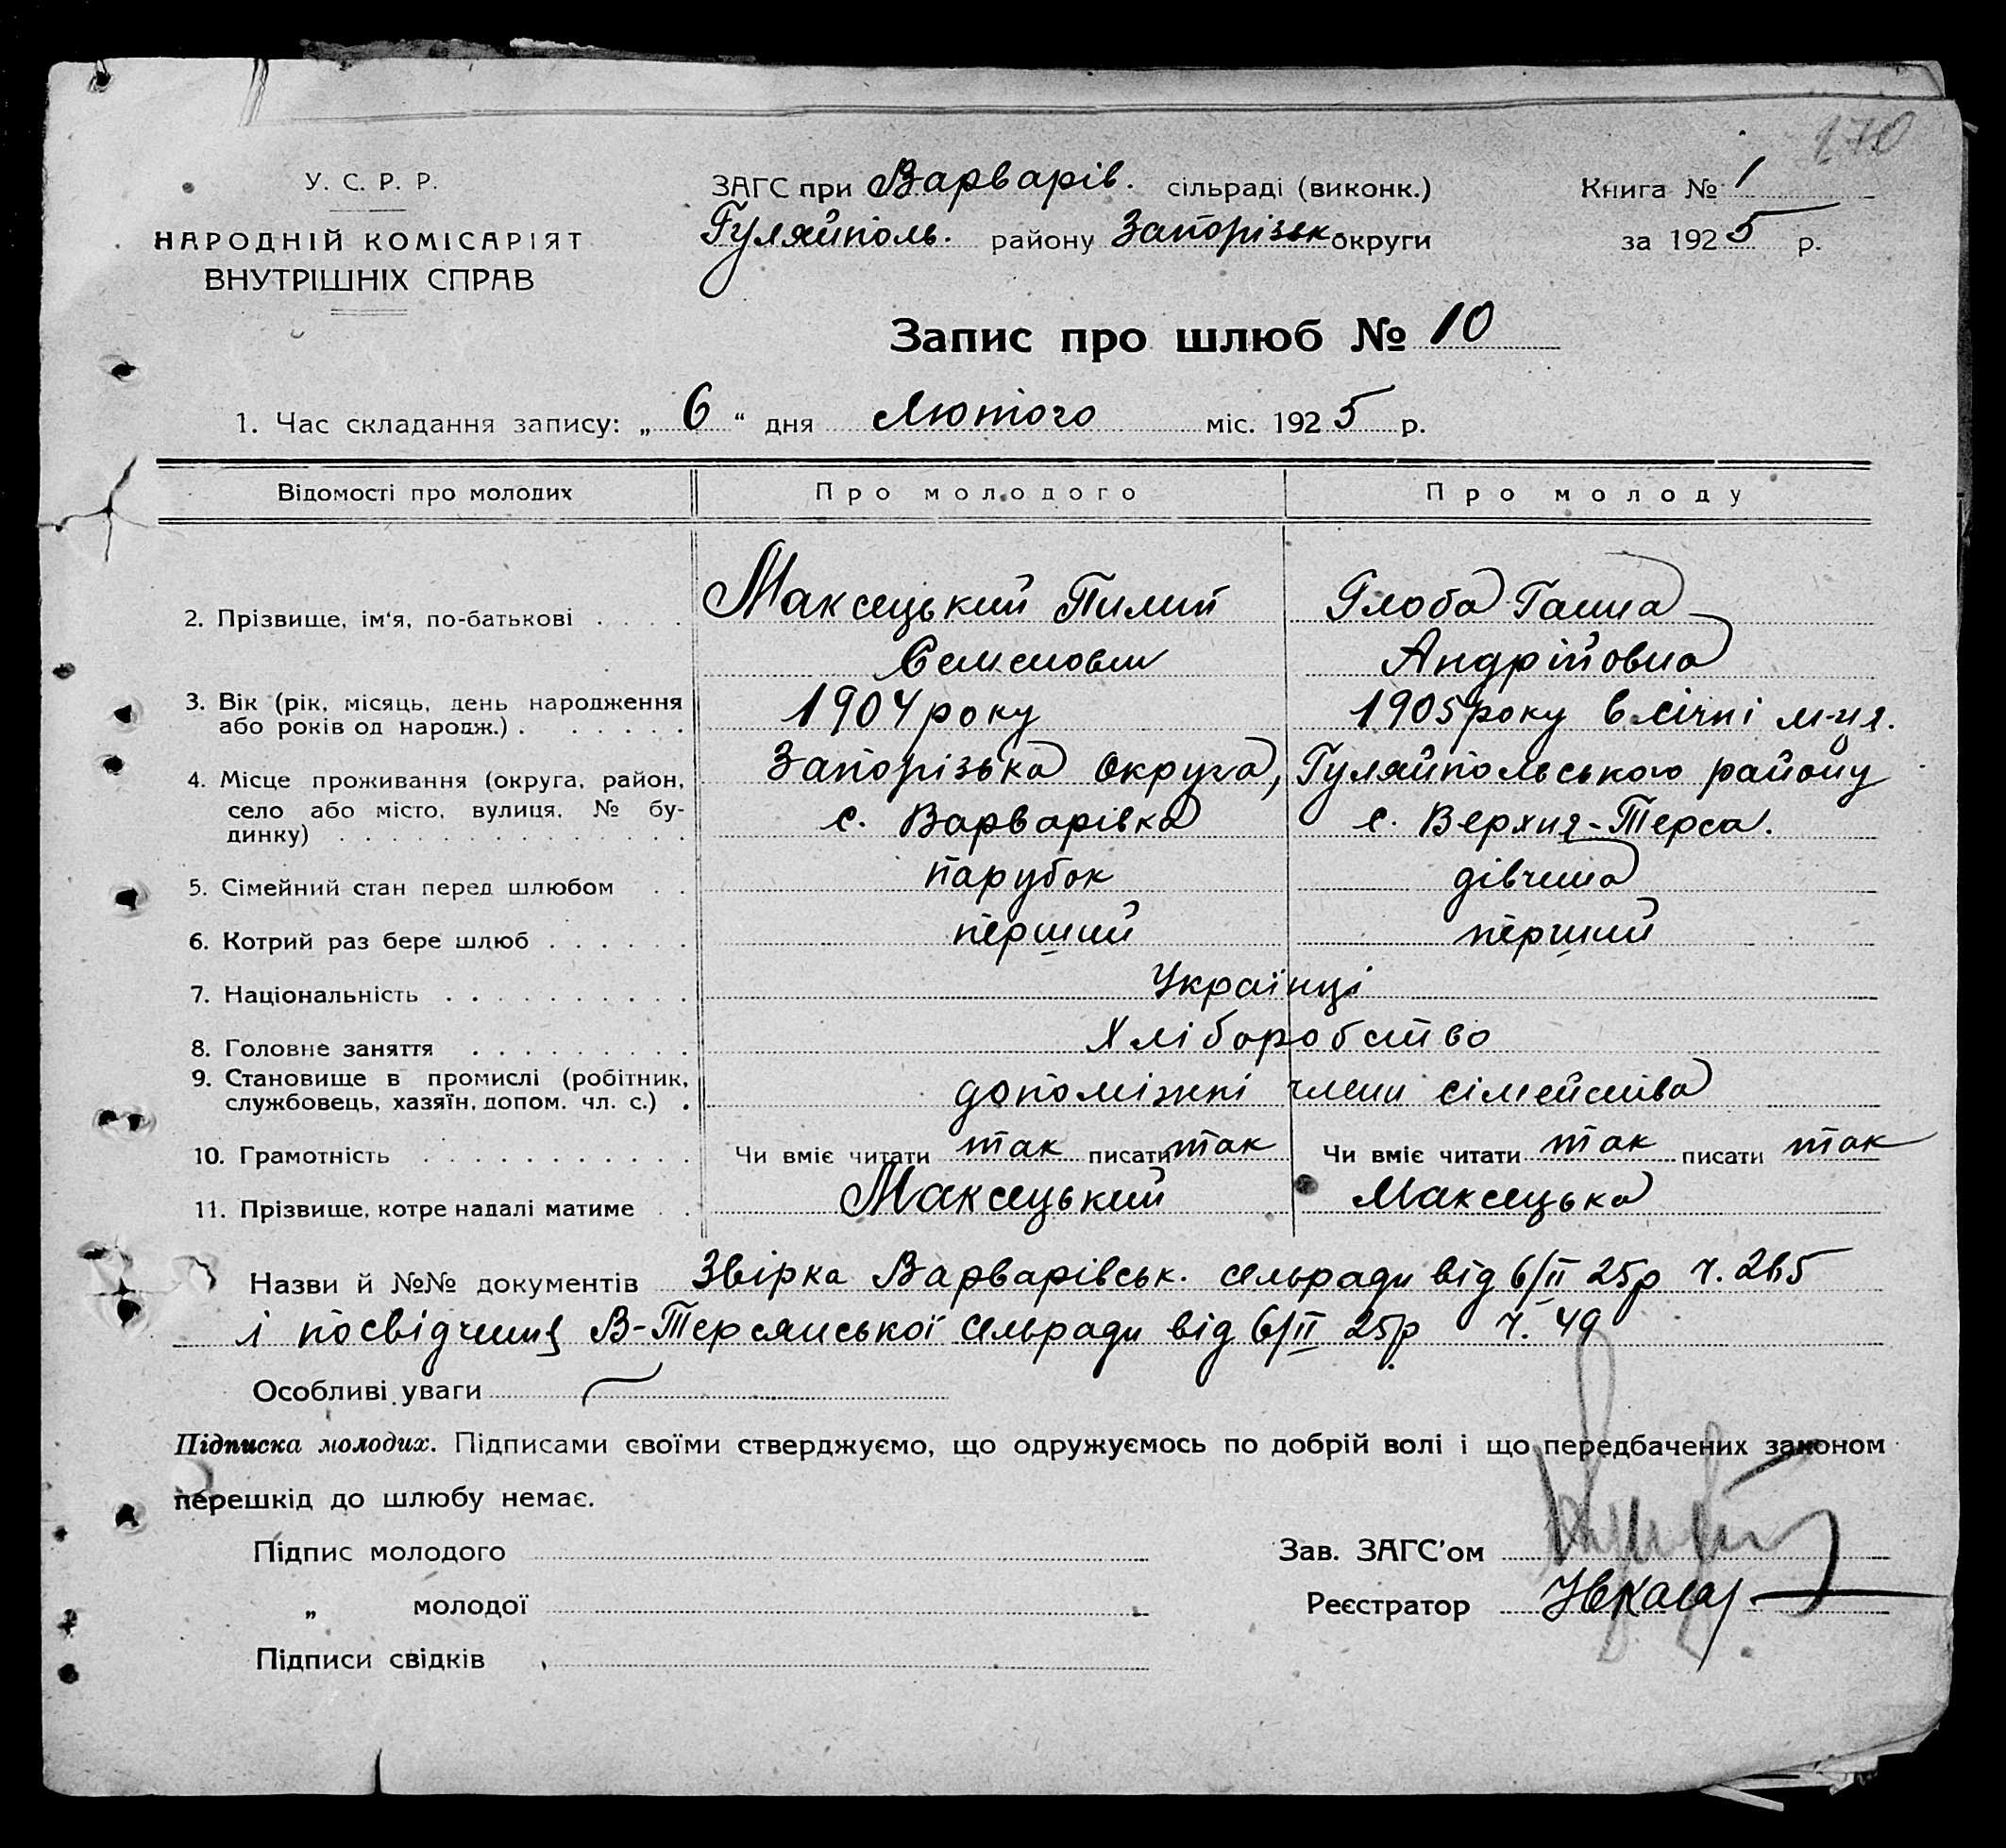 170
У. С. Р. Р.
НАРОДНІЙ КОМІСАРІЯТ
ВНУТРІШНІХ СПРАВ
ЗАГС при Варварів. сільраді (виконк.)
Гуляйполь. району Запорізьк округи
Книга № 1
за 1925 р.
Запис про шлюб № 10
1. Час складання запису: „ 6 “ дня Лютого міс. 1925 р.
Відомості про молодих Про молодого Про молоду
2. Прізвище, ім'я, по-батькові . . . . Максецький Пилип Глоба Ганна
Семенович Андрійовна
3. Вік (рік, місяць, день народження 1904 року 1905 року в січні м-ця.
або років од народж.) . . . . . .
4. Місце проживання (округа, район, Запорізька округа, Гуляйпольського району
село або місто, вулиця, № бу- с. Варварівка с. Верхня-Терса.
динку) . . . . . . . . . . . . . .
5. Сімейний стан перед шлюбом . . парубок дівчина
6. Котрий раз бере шлюб . . . . . . перший перший
7. Національність . . . . . . . . . . Українці
8. Головне заняття . . . . . . . . . Хліборобство
9. Становище в промислі (робітник,
службовець, хазяїн, допом. чл. с.) . допоміжні члени сімейства
10. Грамотність . . . . . . . . . . . Чи вміє читати так писати так Чи вміє читати так писати так
11. Прізвище, котре надалі матиме . . Максецький Максецька
Назви й №№ документів Звірка Варварівськ. сельради від 6/II 25р ч. 265
і посвідчння В-Терсянської сельради від 6/II 25р ч. 49
Особливі уваги
Підписка молодих. Підписами своїми стверджуємо, що одружуємось по добрій волі і що передбачених законом
перешкід до шлюбу немає.
Підпис молодого
Зав. ЗАГС'ом
„ молодої
Реєстратор
Підписи свідків